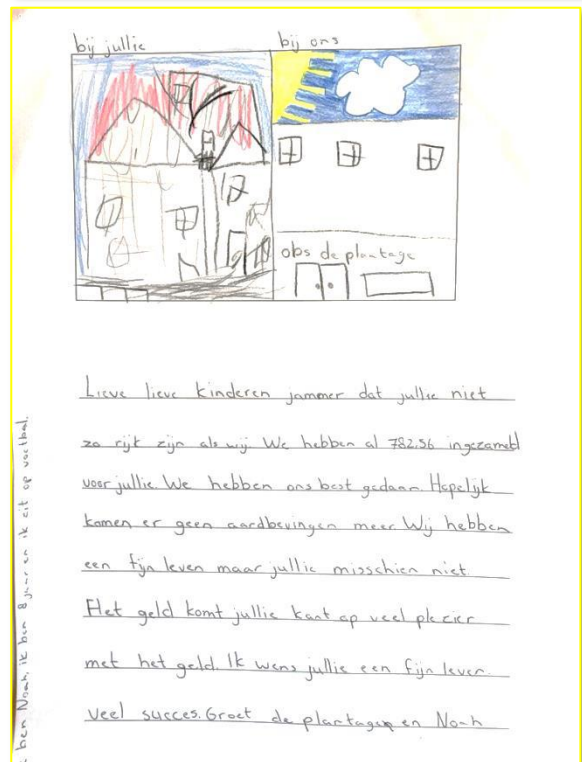 bij jullie
bij ons
obs de plantage
Lieve lieve kinderen jammer dat jullie niet
zo rijk zijn als wij. We hebben al 782.56 ingezameld
voor jullie. We hebben ons best gedaan. Hopelijk
komen er geen aardbevingen meer. Wij hebben
een fijn leven maar jullie misschien niet.
Het geld komt jullie kant op veel plezier
met het geld. Ik wens jullie een fijn leven.
veel succes. Groet de plantage en Noah
ben Noah. ik ben 8 jaar en ik zit op voetbal.